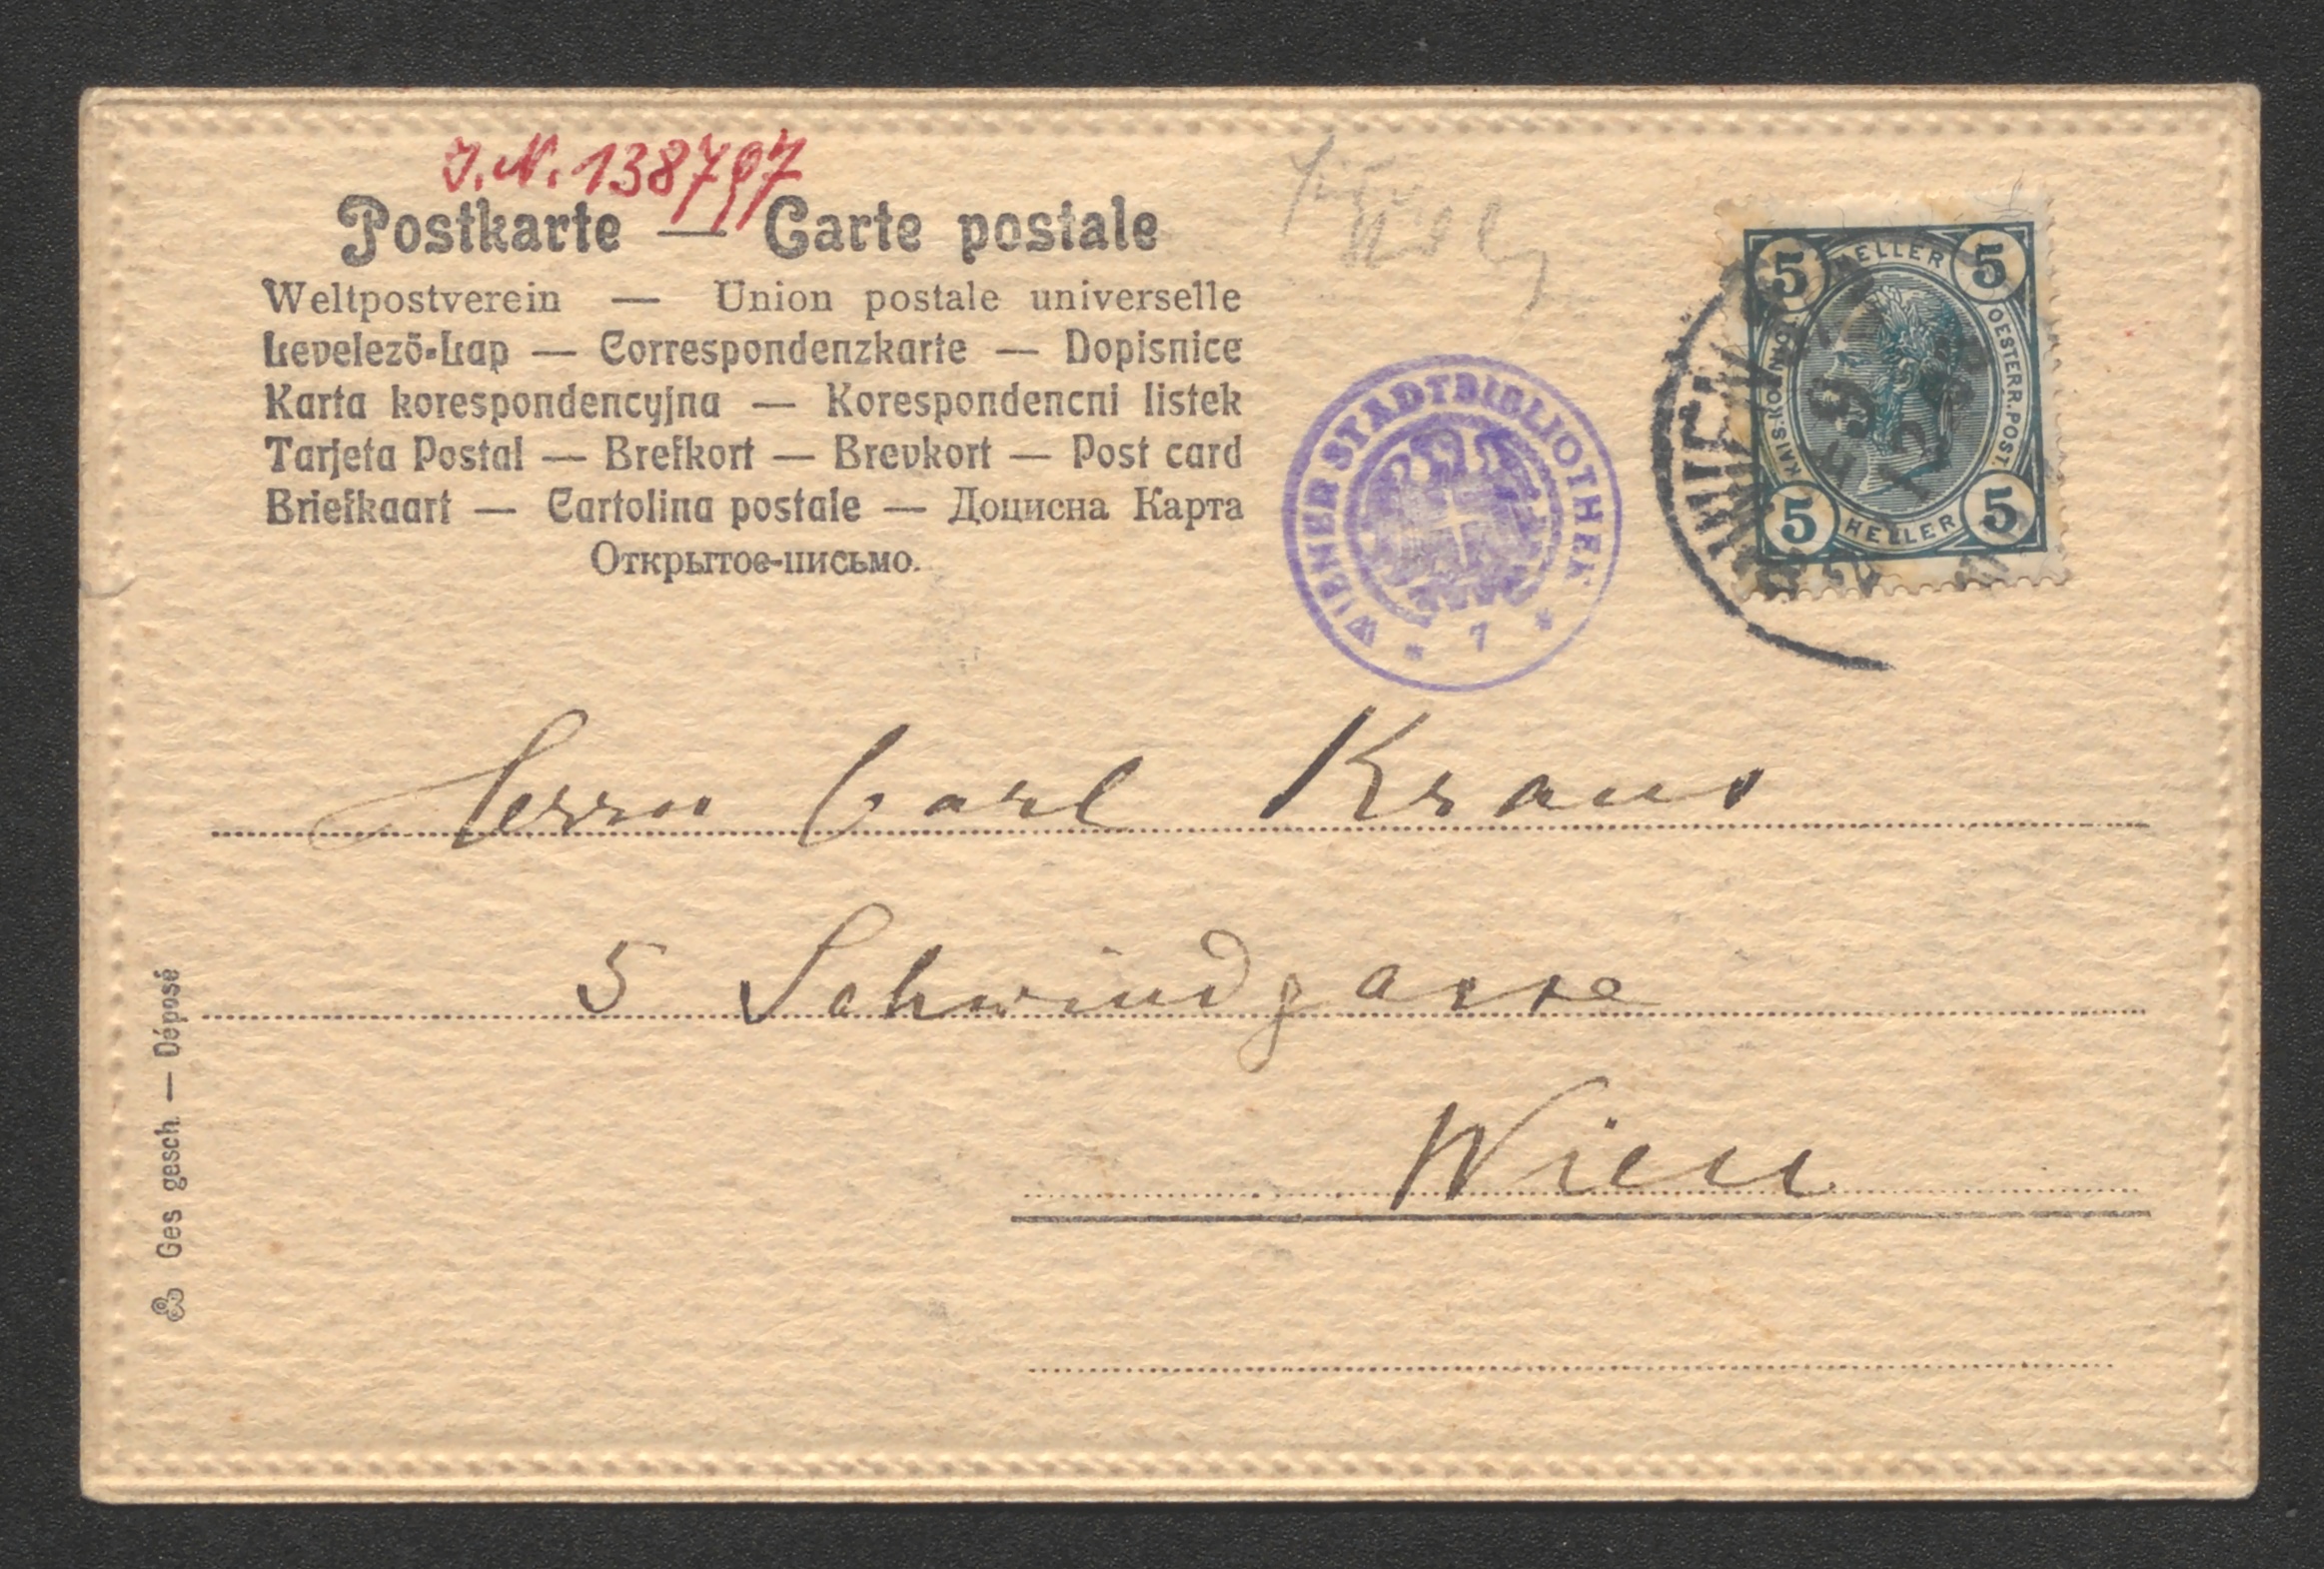 J.N. 138797
Postkarte — Carte postale
Weltpostverein — Union postale universelle
Levelezö-Lap — Correspondenzkarte — Dopisnice
Karta korespondencyjna — Korespondencni listek
Tarjeta Postal — Brefkort — Brevkort — Post card
Briefkaart — Cartolina postale — Доцисна Карта
Открытое-письмо.
WIENER STADTBIBLIOTHEK
* 7 *
5 HELLER 5
KAIS. KÖNIGL.
OESTERR. POST
5 HELLER 5
WIEN
Herrn Carl Kraus
5 Schwindgasse
Wien
Ges gesch. — Déposé